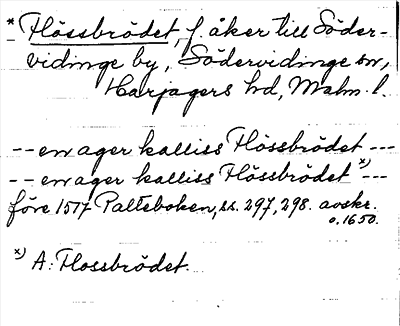 * Flössbrödet, f. åker till Söder-
vidinge by, Södervidinge sn,
Harjagers hd, Malm. l.
-- en ager kalliss Flössbrödet ---
-- en ager kalliss Flössbrödet x) ---
före 1517 Palteboken, ss. 297, 298. avskr.
o. 1650.
x) A: Flossbrödet.